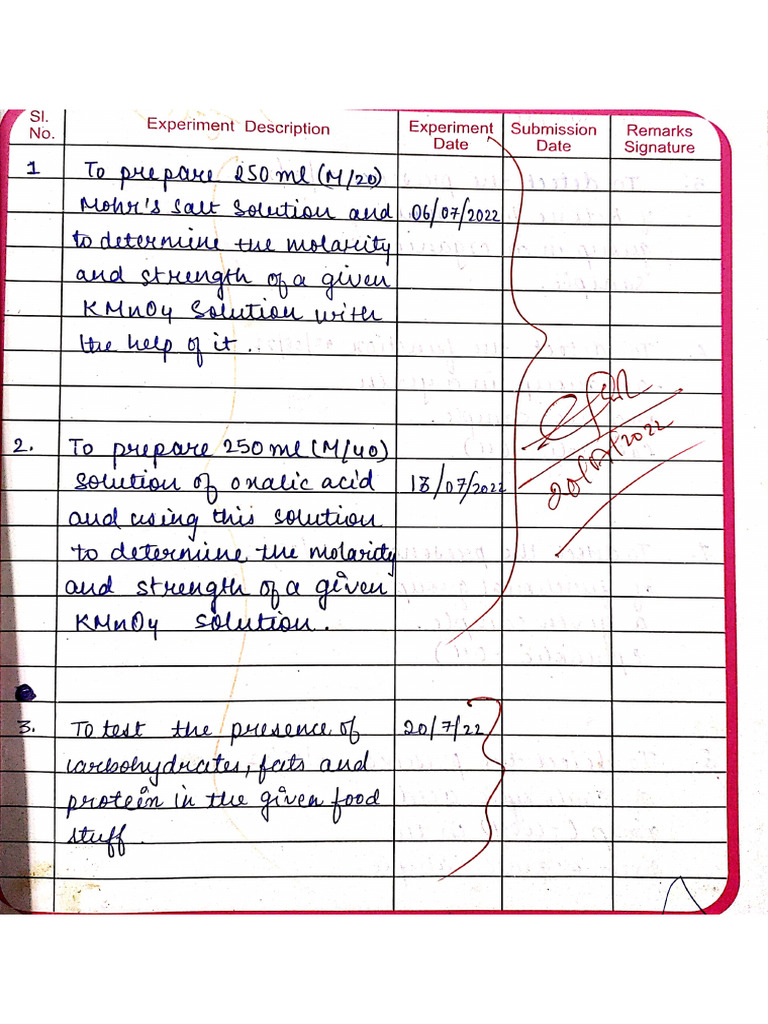 Sl. No. Experiment Description Experiment Date Submission Date Remarks Signature
1 To prepare 250 ml (M/20)
Mohr's Salt Solution and 06/07/2022
to determine the molarity
and strength of a given
KMnO4 Solution with
the help of it.
2. To prepare 250 ml (M/40)
solution of oxalic acid 13/07/2022
and using this solution
to determine the molarity
and strength of a given
KMnO4 solution.
20/07/2022
3. To test the presence of 20/7/22
carbohydrates, fats and
protein in the given food
stuff.